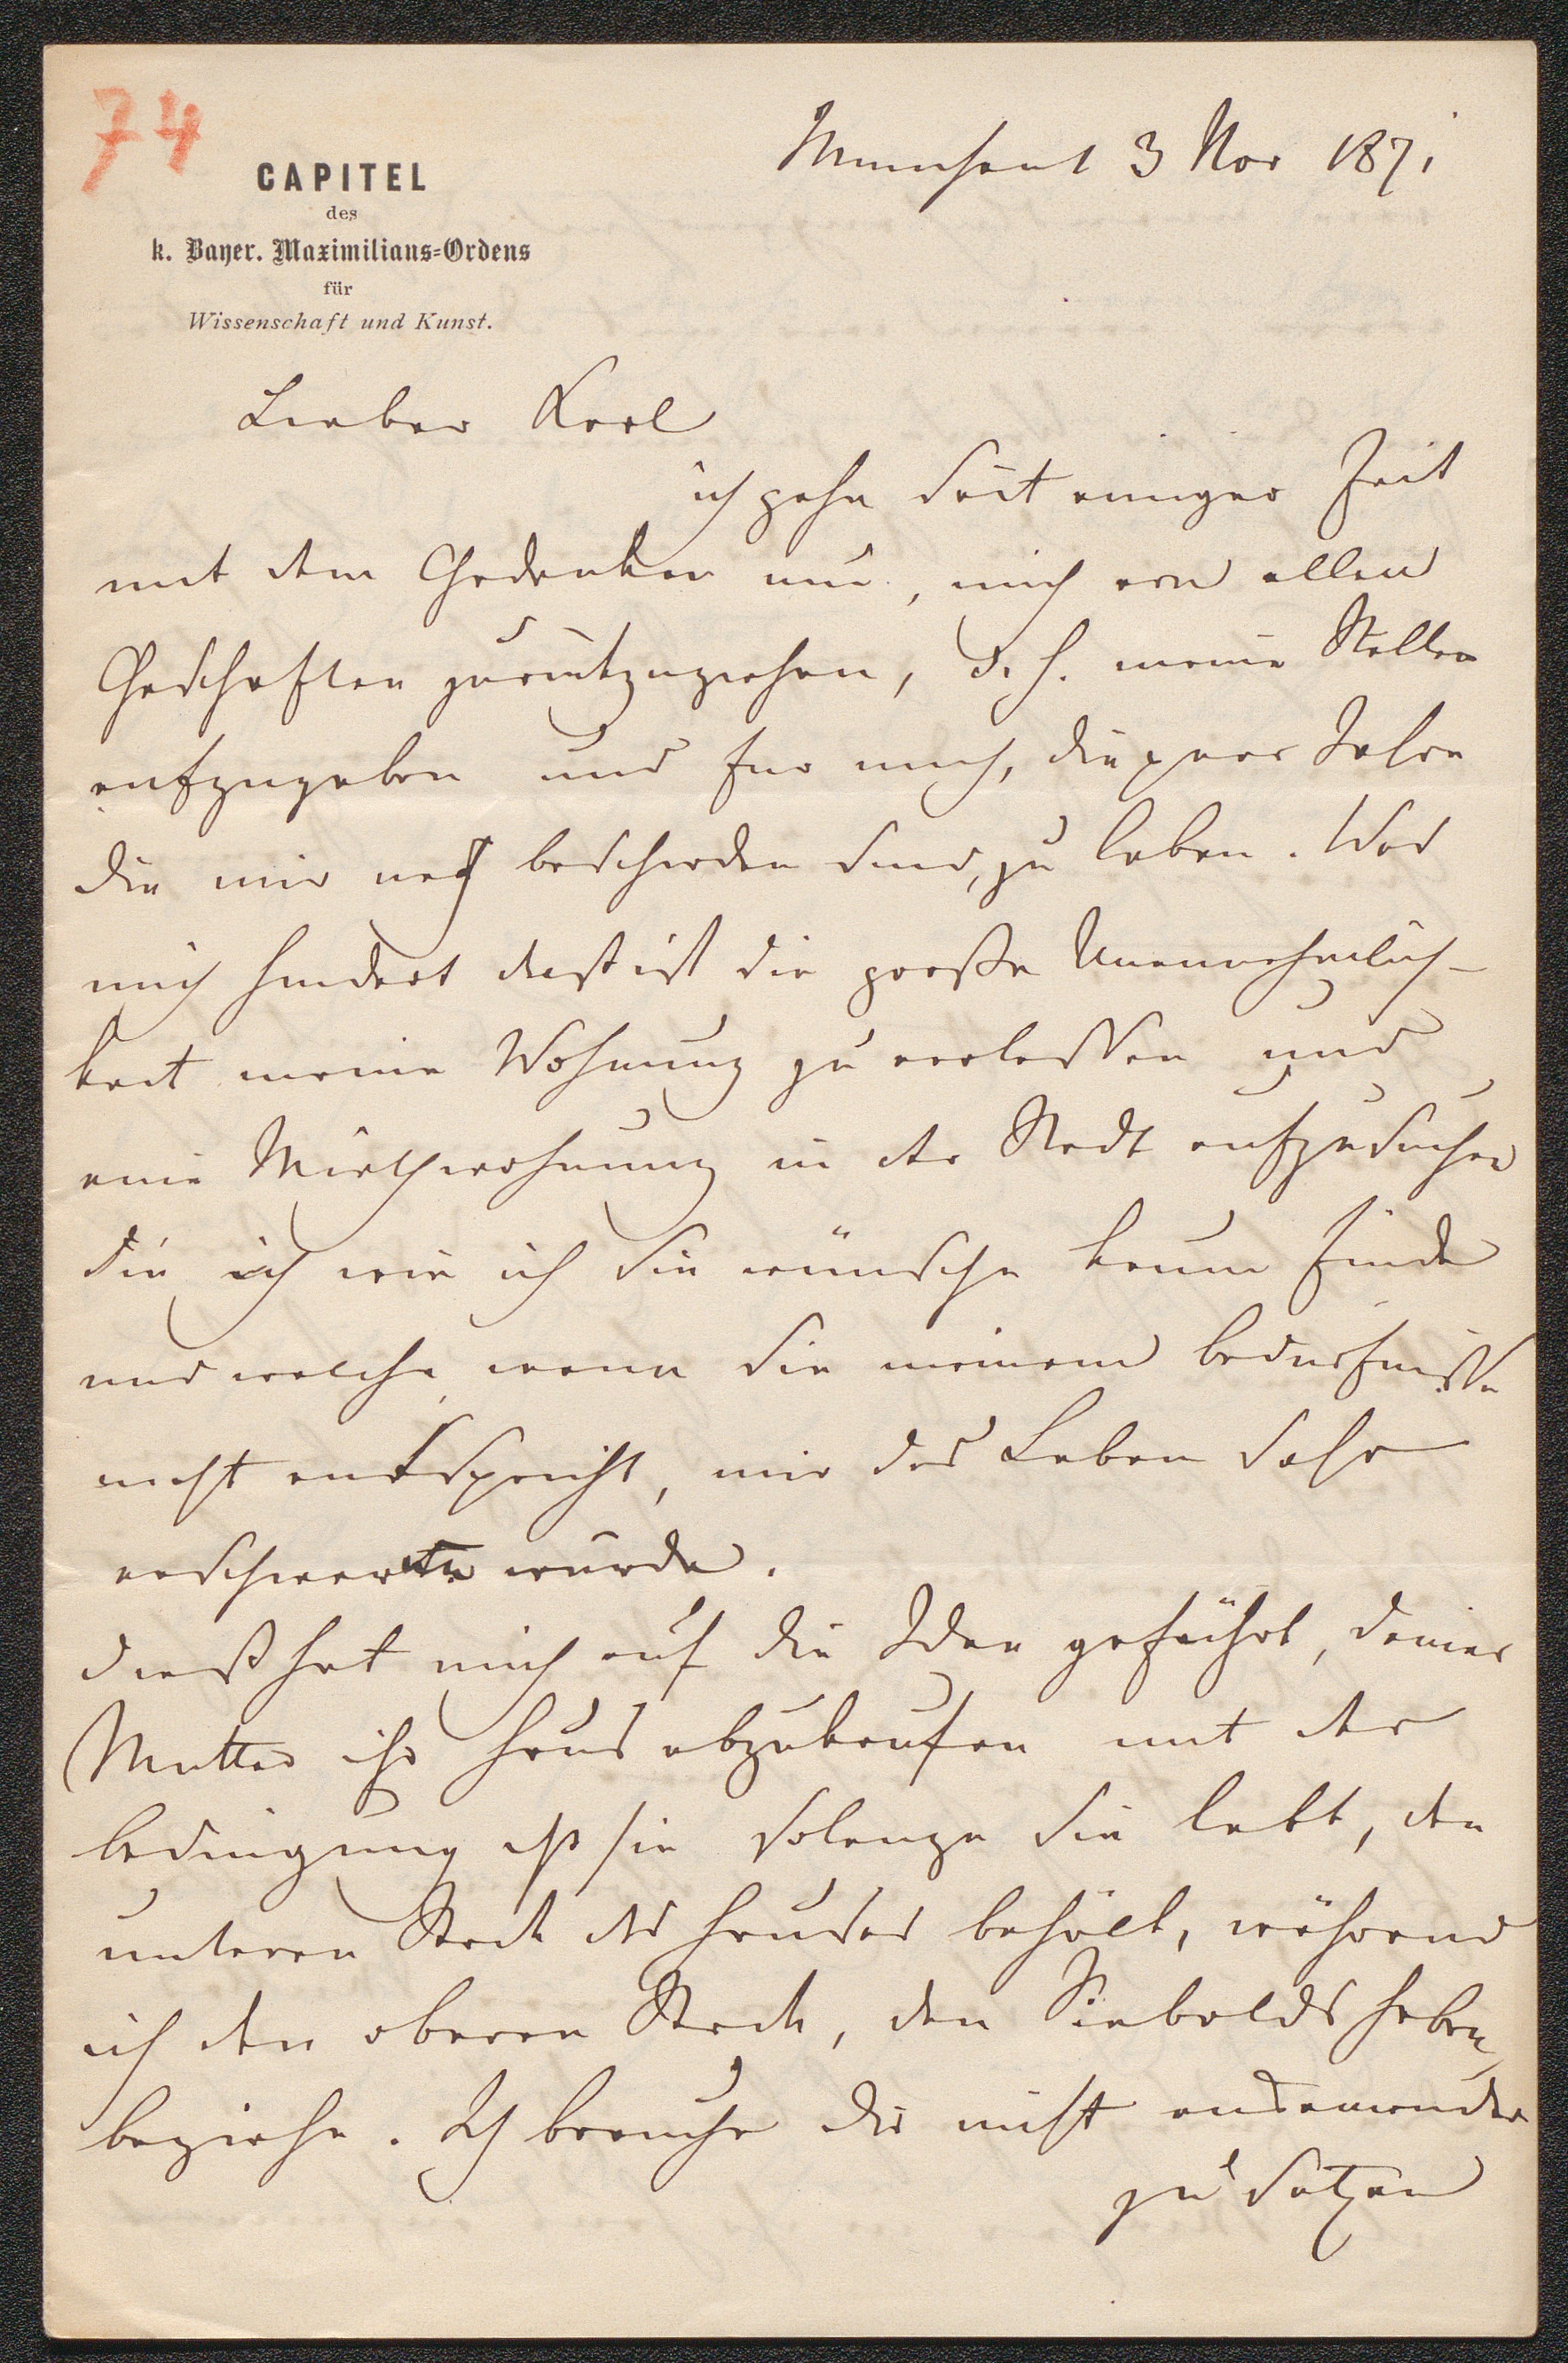 74
CAPITEL
des
k. Bayer. Maximilians-Ordens
für
Wissenschaft und Kunst.
Munchen d 3 Nov 1871
Lieber Karl
ich gehe seit einiger Zeit
mit dem Gedanken um, mich von allen
Geschaften zurückzuziehen, d. h. meine Stellen
aufzugeben und fur mich, die paar Jahre
die mir noch beschieden sind, zu leben. Was
mich hindert dieß ist die große Unannehmlich-
keit meine Wohnung zu verlassen und
eine Miethwohnung in der Stadt aufzusuchen
die ich wie ich sie wünsche kaum finde
und welche, wenn sie meinem Bedurfnisse
nicht entspricht, mir das Leben sehr
erschweren wurde.
Dieß hat mich auf die Idee geführt, deiner
Mutter ihr Haus abzukaufen mit der
Bedingung daß sie solange sie lebt, den
unteren Stock des Hauses behält, während
ich den oberen Stock, den Siebolds haben,
beziehe. Ich brauche dir nicht auseinander
zu setzen